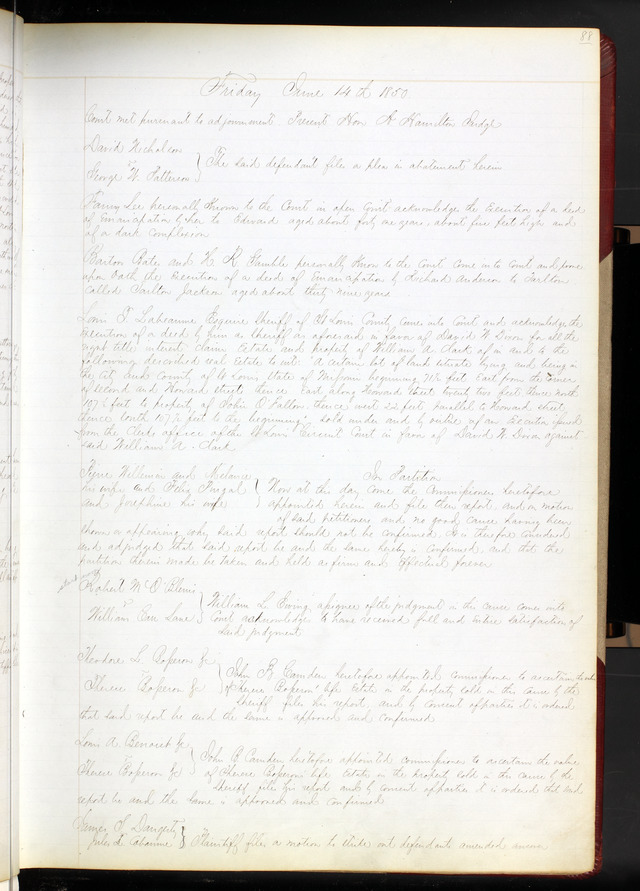 88
Friday June 14th 1850
Court met pursuant to adjournment. Present Hon A Hamilton Judge
David Nicholson
vs
George W. Patterson } The said defendant files a plea in abatement herein
Fanny Lee personally known to the Court in open Court acknowledge the Execution of a deed
of Emancipation by her to Edward aged about forty six years, about five feet high and
of a dark complexion
Barton Bates and W R personally known to the Court come into Court and prove
upon Oath the Execution of a deed of Emancipation by Richard Anderson to Tarlton
called Tarlton Jackson aged about thirty nine years
Louis T Labeaume Esquire Sheriff of St Louis County, comes into Court and acknowledges the
Execution of a deed by him as Sheriff as aforesaid in favor of David W. Dixon for all the
right title interest claim estate and property of William A Clark of in and to the
following described real estate to wit: A certain lot of land situate lying and being in
the City and County of St Louis State of Missouri beginning feet East from the corner
of Second and Howard streets thence East along Howard Street twenty two feet thence north
107½ feet to property of John O'Fallon thence west 22 feet parallel to Howard street
thence South 107½ feet to the beginning, sold under and by virtue of an Execution issued
from the Clerks office of the St Louis Circuit Court in favor of David W. Dixon against
said William A. Clark
and Melanie In Partition
his wife and Felix
and Josephine his wife } Now at this day come the Commissioners heretofore
appointed herein and file their report, and on motion
of said petitioners and no good cause having been
shown or appearing why said report should not be confirmed, it is therefore considered
and adjudged that said report be and the same hereby is confirmed, and that the
partition therein made be taken and held as firm and effectual forever
Robert M O'Blenis
vs
William Carr Lane } William L Ewing assignee of the judgment in this cause comes into
Court acknowledge to have received full and entire satisfaction of
said judgment
Theodore L
vs
Therese } John B Camden heretofore appointed commissioner to ascertain the value
of Therese life Estate in the property sold in this cause by the
Sheriff files his report, and by consent of parties it is ordered
that said report be and the same is approved and confirmed
Louis A. Benoist &c
vs
Therese } John B Camden heretofore appointed commissioner to ascertain the value
of Therese life estate in the property sold in this cause by the
Sheriff files his report and by consent of parties it is ordered that said
report be and the same is approved and confirmed
James Daugherty
Jules } Plaintiff files a motion to strike out defendants amended answer